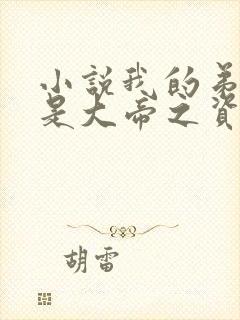 小說我的弟
是大帝之資
胡雷